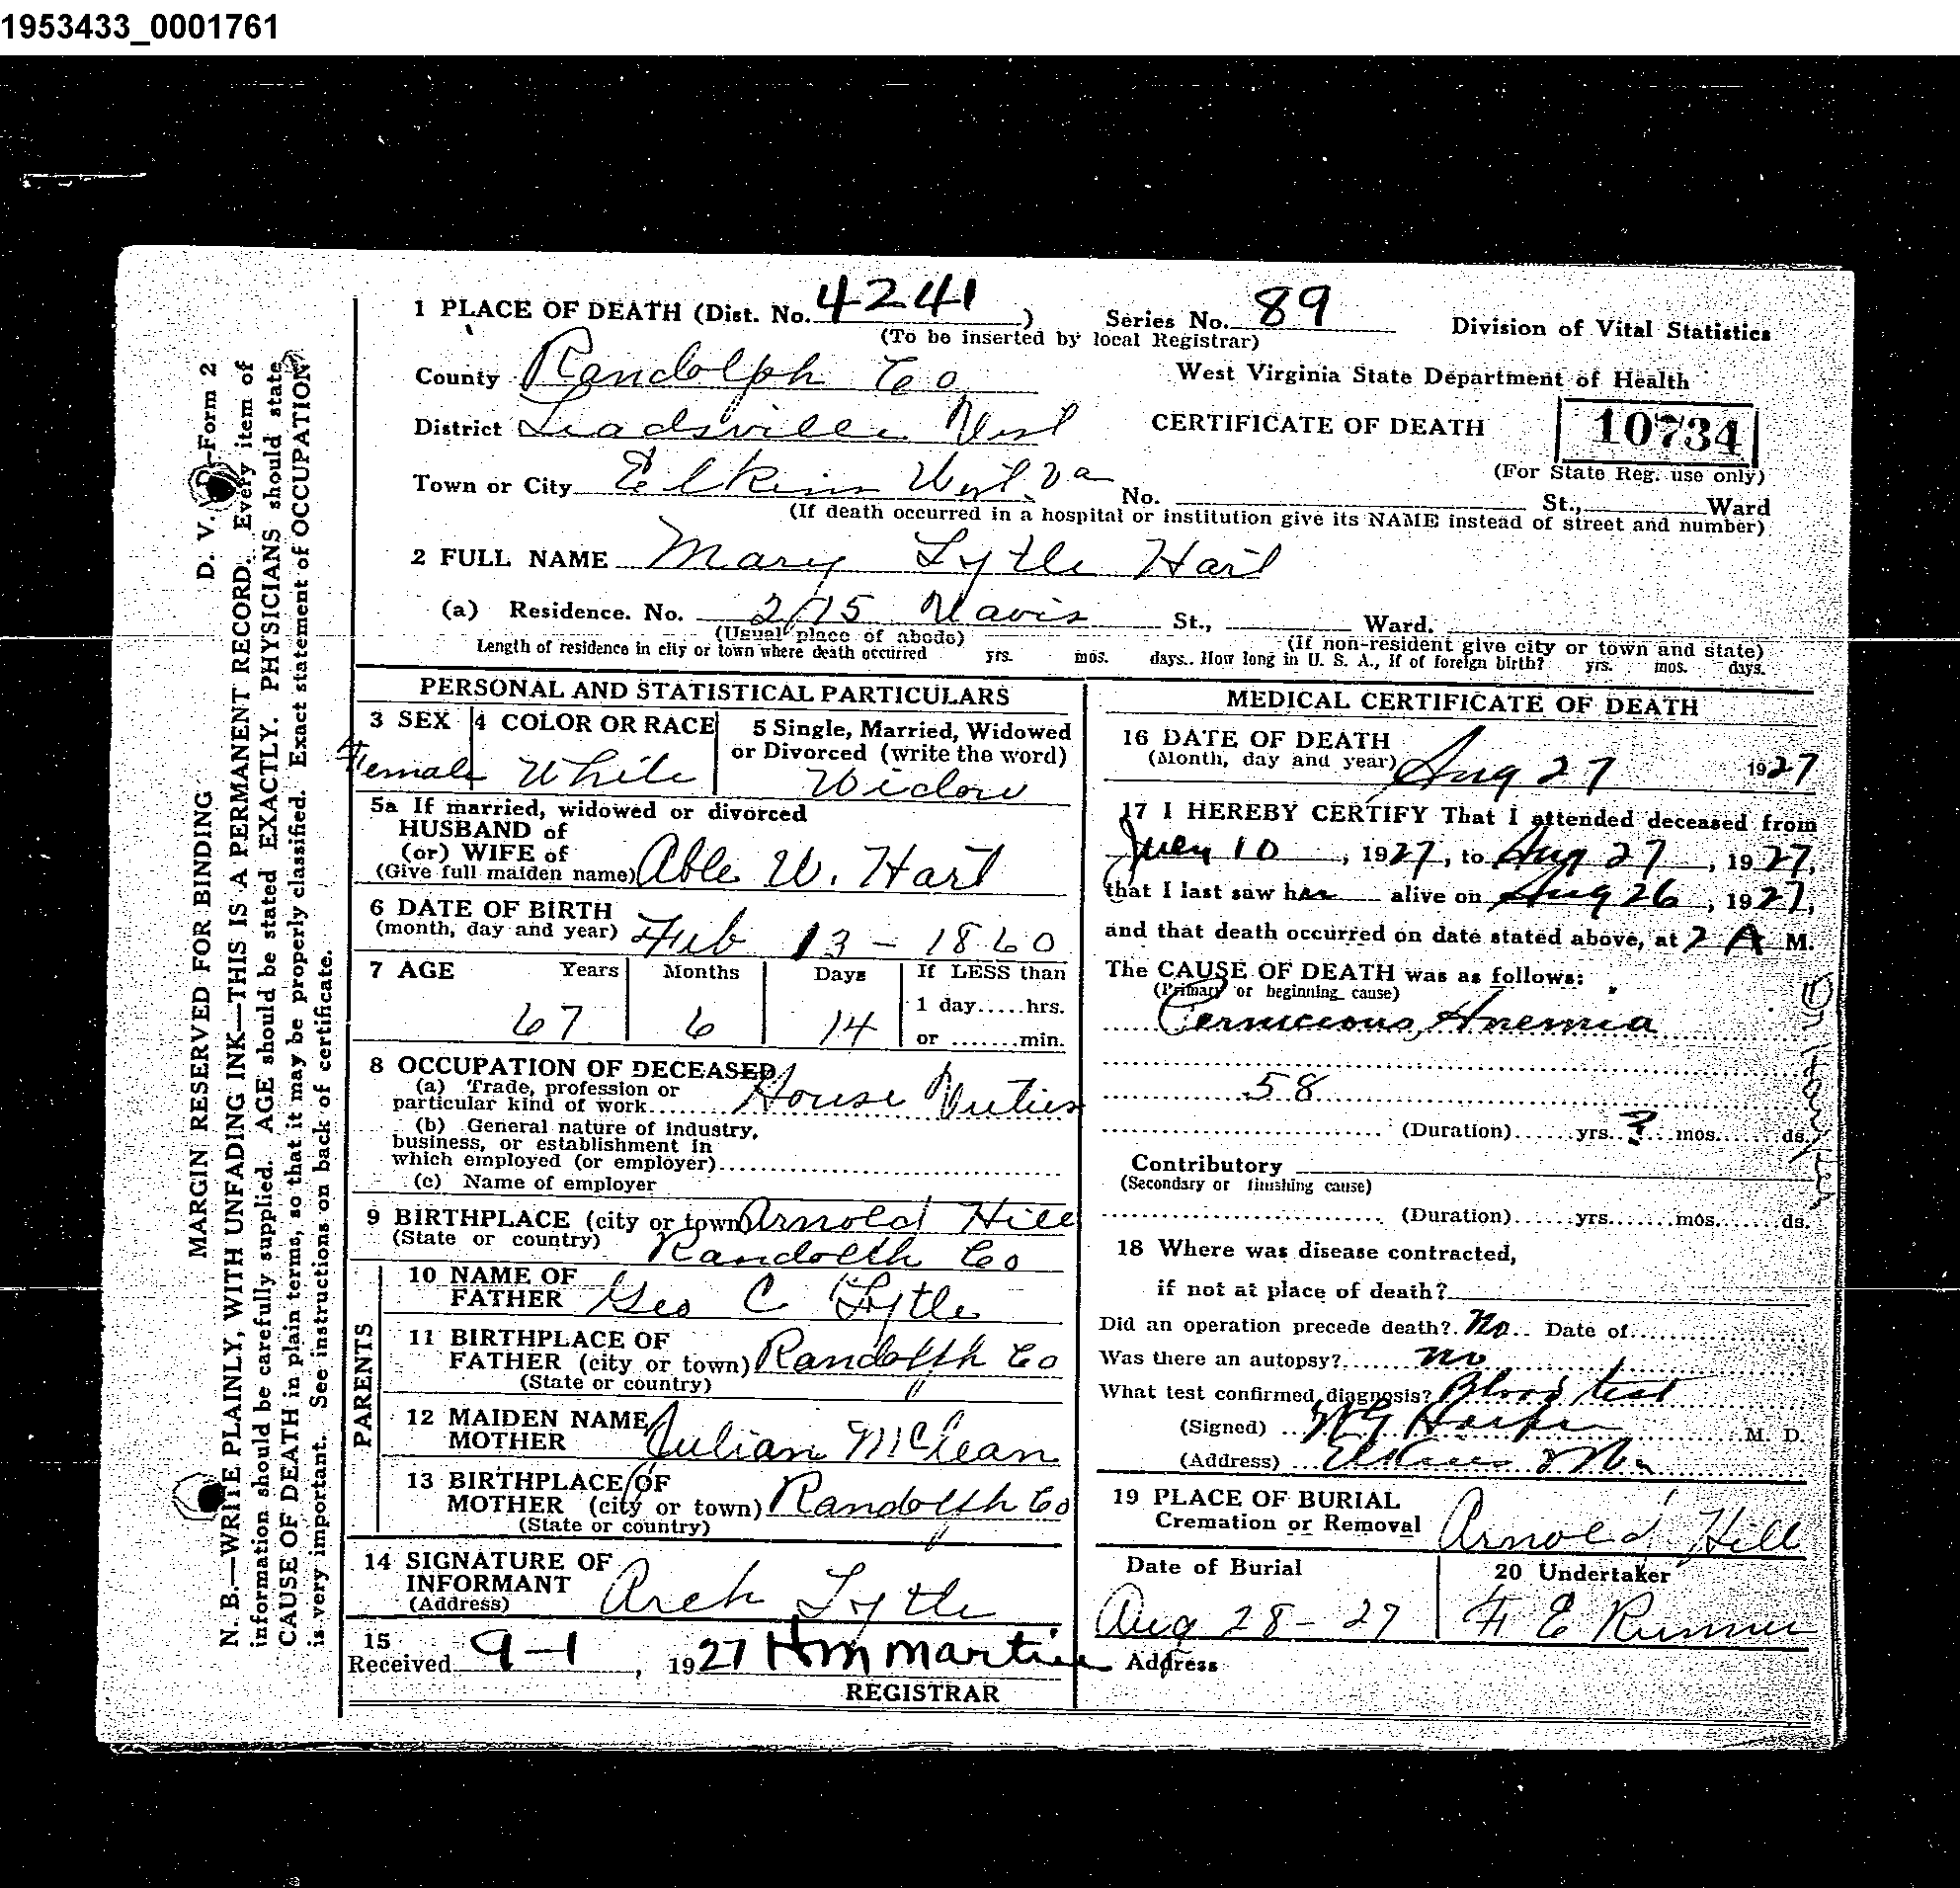 1953433_0001761
1 PLACE OF DEATH (Dist. No. 4241 ) Series No. 89 Division of Vital Statistics
(To be inserted by local Registrar)
County Randolph Co West Virginia State Department of Health
District Leadsville Dist CERTIFICATE OF DEATH 10734
(For State Reg. use only)
Town or City Elkins W.Va No. St., Ward
(If death occurred in a hospital or institution give its NAME instead of street and number)
2 FULL NAME Mary Lytle Hart
(a) Residence. No. 215 Davis St., Ward.
(Usual place of abode) (If non-resident give city or town and state)
Length of residence in city or town where death occurred yrs. mos. days. How long in U. S. A., if of foreign birth? yrs. mos. days.
PERSONAL AND STATISTICAL PARTICULARS
3 SEX 4 COLOR OR RACE 5 Single, Married, Widowed
or Divorced (write the word)
Female White Widow
5a If married, widowed or divorced
HUSBAND of
(or) WIFE of
(Give full maiden name) Able W. Hart
6 DATE OF BIRTH
(month, day and year) Feb 13 - 1860
7 AGE Years Months Days If LESS than
1 day.....hrs.
67 6 14
or .......min.
8 OCCUPATION OF DECEASED
(a) Trade, profession or
particular kind of work House Duties
(b) General nature of industry,
business, or establishment in
which employed (or employer)
(c) Name of employer
9 BIRTHPLACE (city or town) Arnold Hill
(State or country) Randolth Co
PARENTS
10 NAME OF
FATHER Geo C Lytle
11 BIRTHPLACE OF
FATHER (city or town) Randolth Co
(State or country) "
12 MAIDEN NAME
MOTHER Julian McLean
13 BIRTHPLACE OF
MOTHER (city or town) Randolth Co
(State or country) "
14 SIGNATURE OF
INFORMANT Arch Lytle
(Address)
15
Received 9-1, 1927 H m martin
REGISTRAR
MEDICAL CERTIFICATE OF DEATH
16 DATE OF DEATH
(Month, day and year) Aug 27 1927
17 I HEREBY CERTIFY That I attended deceased from
July 10, 1927, to Aug 27, 1927,
that I last saw her alive on Aug 26, 1927,
and that death occurred on date stated above, at 2 A M.
The CAUSE OF DEATH was as follows:
(Primary or beginning cause)
Pernicious Anemia
58
(Duration)......yrs. ? mos.......ds.
Contributory
(Secondary or finishing cause)
(Duration)......yrs.......mos.......ds.
18 Where was disease contracted,
if not at place of death?
Did an operation precede death? No Date of
Was there an autopsy? no
What test confirmed diagnosis? Blood test
(Signed) W G Harper M. D.
(Address) Elkins
19 PLACE OF BURIAL
Cremation or Removal Arnold Hill
Date of Burial 20 Undertaker
Aug 28 - 27 F E Runner
Address
MARGIN RESERVED FOR BINDING D. V. Form 2
N. B.—WRITE PLAINLY, WITH UNFADING INK—THIS IS A PERMANENT RECORD. Every item of
information should be carefully supplied. AGE should be stated EXACTLY. PHYSICIANS should state
CAUSE OF DEATH in plain terms, so that it may be properly classified. Exact statement of OCCUPATION
is very important. See instructions on back of certificate.